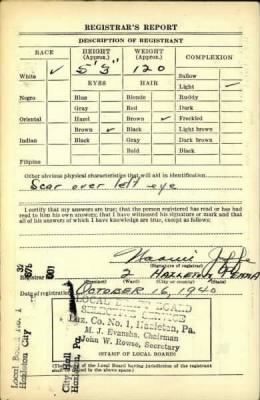 REGISTRAR'S REPORT
DESCRIPTION OF REGISTRANT
RACE
HEIGHT (Approx.)
WEIGHT (Approx.)
COMPLEXION
White ✓
5' 3"
120
Sallow
EYES
HAIR
Light ✓
Negro
Blue
Blonde
Ruddy
Gray
Red
Dark
Oriental
Hazel
Brown ✓
Freckled
Brown ✓
Black
Light brown
Indian
Black
Gray
Dark brown
Bald
Black
Filipino
Other obvious physical characteristics that will aid in identification
Scar over left eye
I certify that my answers are true; that the person registered has read or has had
read to him his own answers; that I have witnessed his signature or mark and that
all of his answers of which I have knowledge are true, except as follows:
(Signature of registrar)
Registrar
2
HAZLETON PENNA
(Ward)
(City or county)
(State)
Date of registration
OCTOBER 16, 1940
LOCAL DRAFT BOARD
SELECTIVE SERVICE
Luz. Co. No. 1, Hazleton, Pa.
M. J. Evansha, Chairman
John W. Rowse, Secretary
(STAMP OF LOCAL BOARD)
(The stamp of the Local Board having jurisdiction of the registrant
shall be placed in the above space.)
Hazleton City
City Hall
Hazleton, Pa.